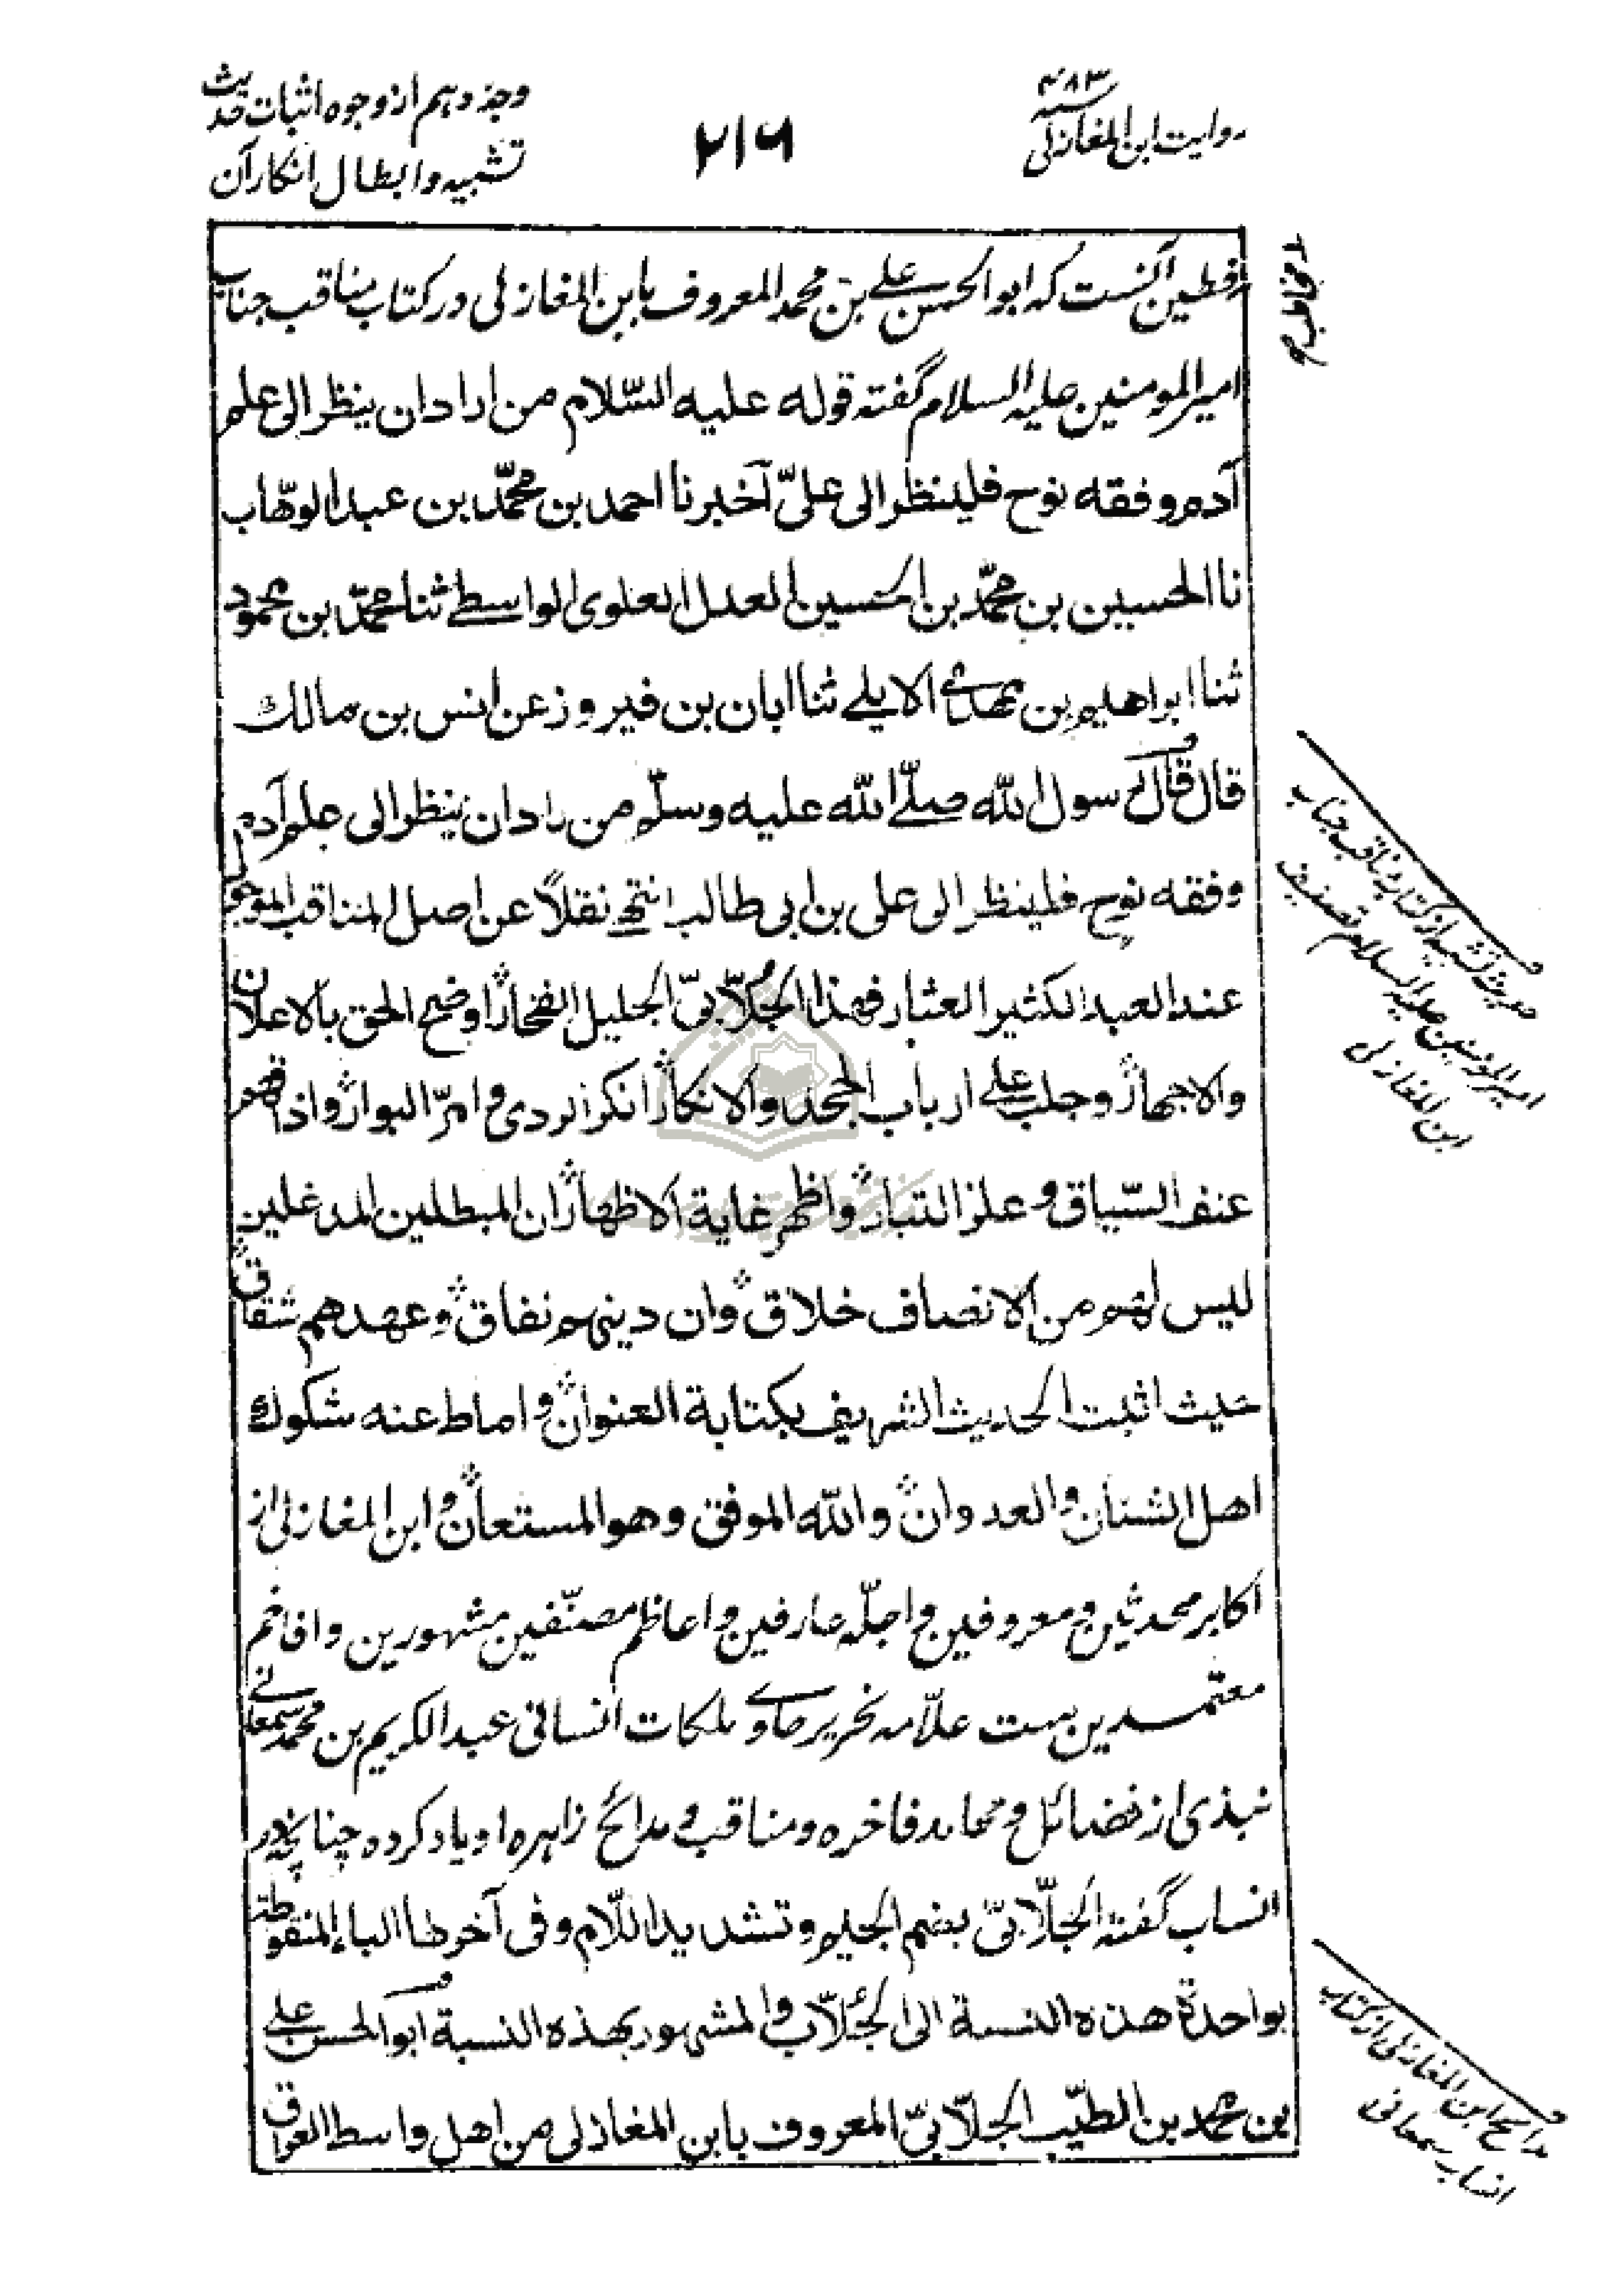 ۴۸۳
روایت ابن المغازلی
۲۱۶
وجه دهم از وجوه اثبات حدیث
تشبیه و ابطال انکار آن
آنست که ابو الحسن علی بن محمد المعروف بابن المغازلی در کتاب مناقب جناب
امیر المومنین علیه السلام گفته قوله علیه السّلام من اراد ان ینظر الی علم
آدم و فقه نوح فلینظر الی علیّ اخبرنا احمد بن محمّد بن عبد الوهّاب
نا الحسین بن محمّد بن الحسین العدل العلوی الواسطے ثنا محمّد بن محمود
ثنا ابراهیم بن مهدی الابلے ثنا ابان بن فیروز عن انس بن مالك
قال قال رسول الله صلّے الله علیه وسلّم من اراد ان ینظر الی علم آدم
وفقه نوح فلینظر الی علی بن ابی طالب انتهی نقلاً عن اصل المناقب الموجود
عند العبد الکثیر العثار فهذا الجُلّابیّ الجلیل الفخار اوضح الحق بالاعلان
والاجهار وجلب علے ارباب الجحد والانکار انکر الردی و امرّ البوار و اذاقهم
عنف السّیاق و علز التبار و اظهر غایة الاظهار ان المبطلین المدغلین
لیس لهم من الانصاف خلاق وان دینهم نفاق و عهدهم شقاق
حیث اثبت الحدیث الشریف بکتابة العنوان و اماط عنه شکوك
اهل الشنآن والعدوان والله الموفق وهو المستعان و ابن المغازلی از
اکابر محدثین و معروفین و اجلّه عارفین و اعاظم مصنّفین مشهورین و افاخم
معتمدین ست علّامه نحریر حاوی ملکات انسانی عبد الکریم بن محمد سمعانی
نبذی از فضائل و محامد فاخره و مناقب و مدائح زاهره او یاد کرده چنانچه در
انساب گفته الجُلّابیّ بضم الجیم وتشدید اللّام وفی آخرها الباء المنقوطة
بواحدة هذه النسبة الی الجُلّاب والمشهور بهذه النسبة ابو الحسن علی
بن محمد بن الطیّب الجلّابیّ المعروف بابن المغازلی من اهل واسط العراق
حدیث تشبیه از کتاب مناقب جناب
امیر المومنین علیه السلام تصنیف
ابن المغازلی
مدائح ابن المغازلی از کتاب
انساب سمعانی